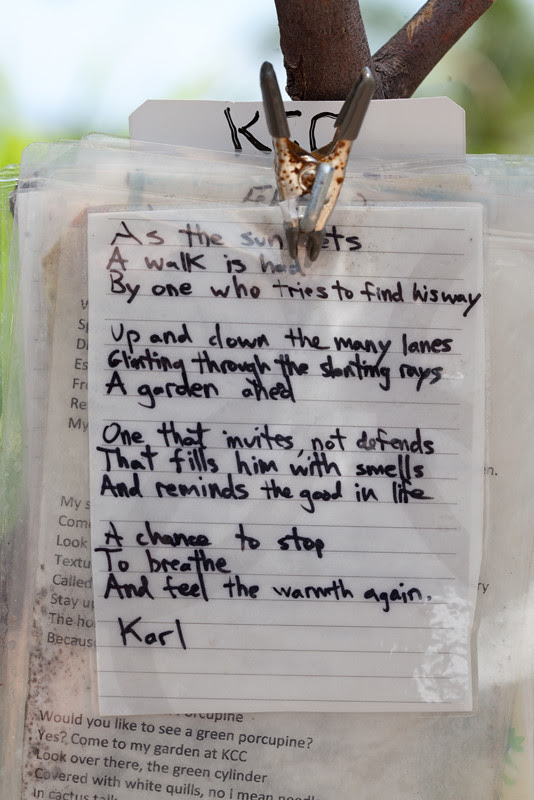 KCC
As the sun sets
A walk is had
By one who tries to find his way
Up and down the many lanes
Glinting through the slanting rays
A garden ahed
One that invites, not defends
That fills him with smells
And reminds the good in life
A chance to stop
To breathe
And feel the warmth again.
Karl
My s
Com
Look
Textu
Called
Stay u
The ho
Becaus
ry
n.
W
Sp
Di
Es
Fr
Re
My
orcupine
Would you like to see a green porcupine?
Yes? Come to my garden at KCC
Look over there, the green cylinder
Covered with white quills, no i mean needl
In cactus talk